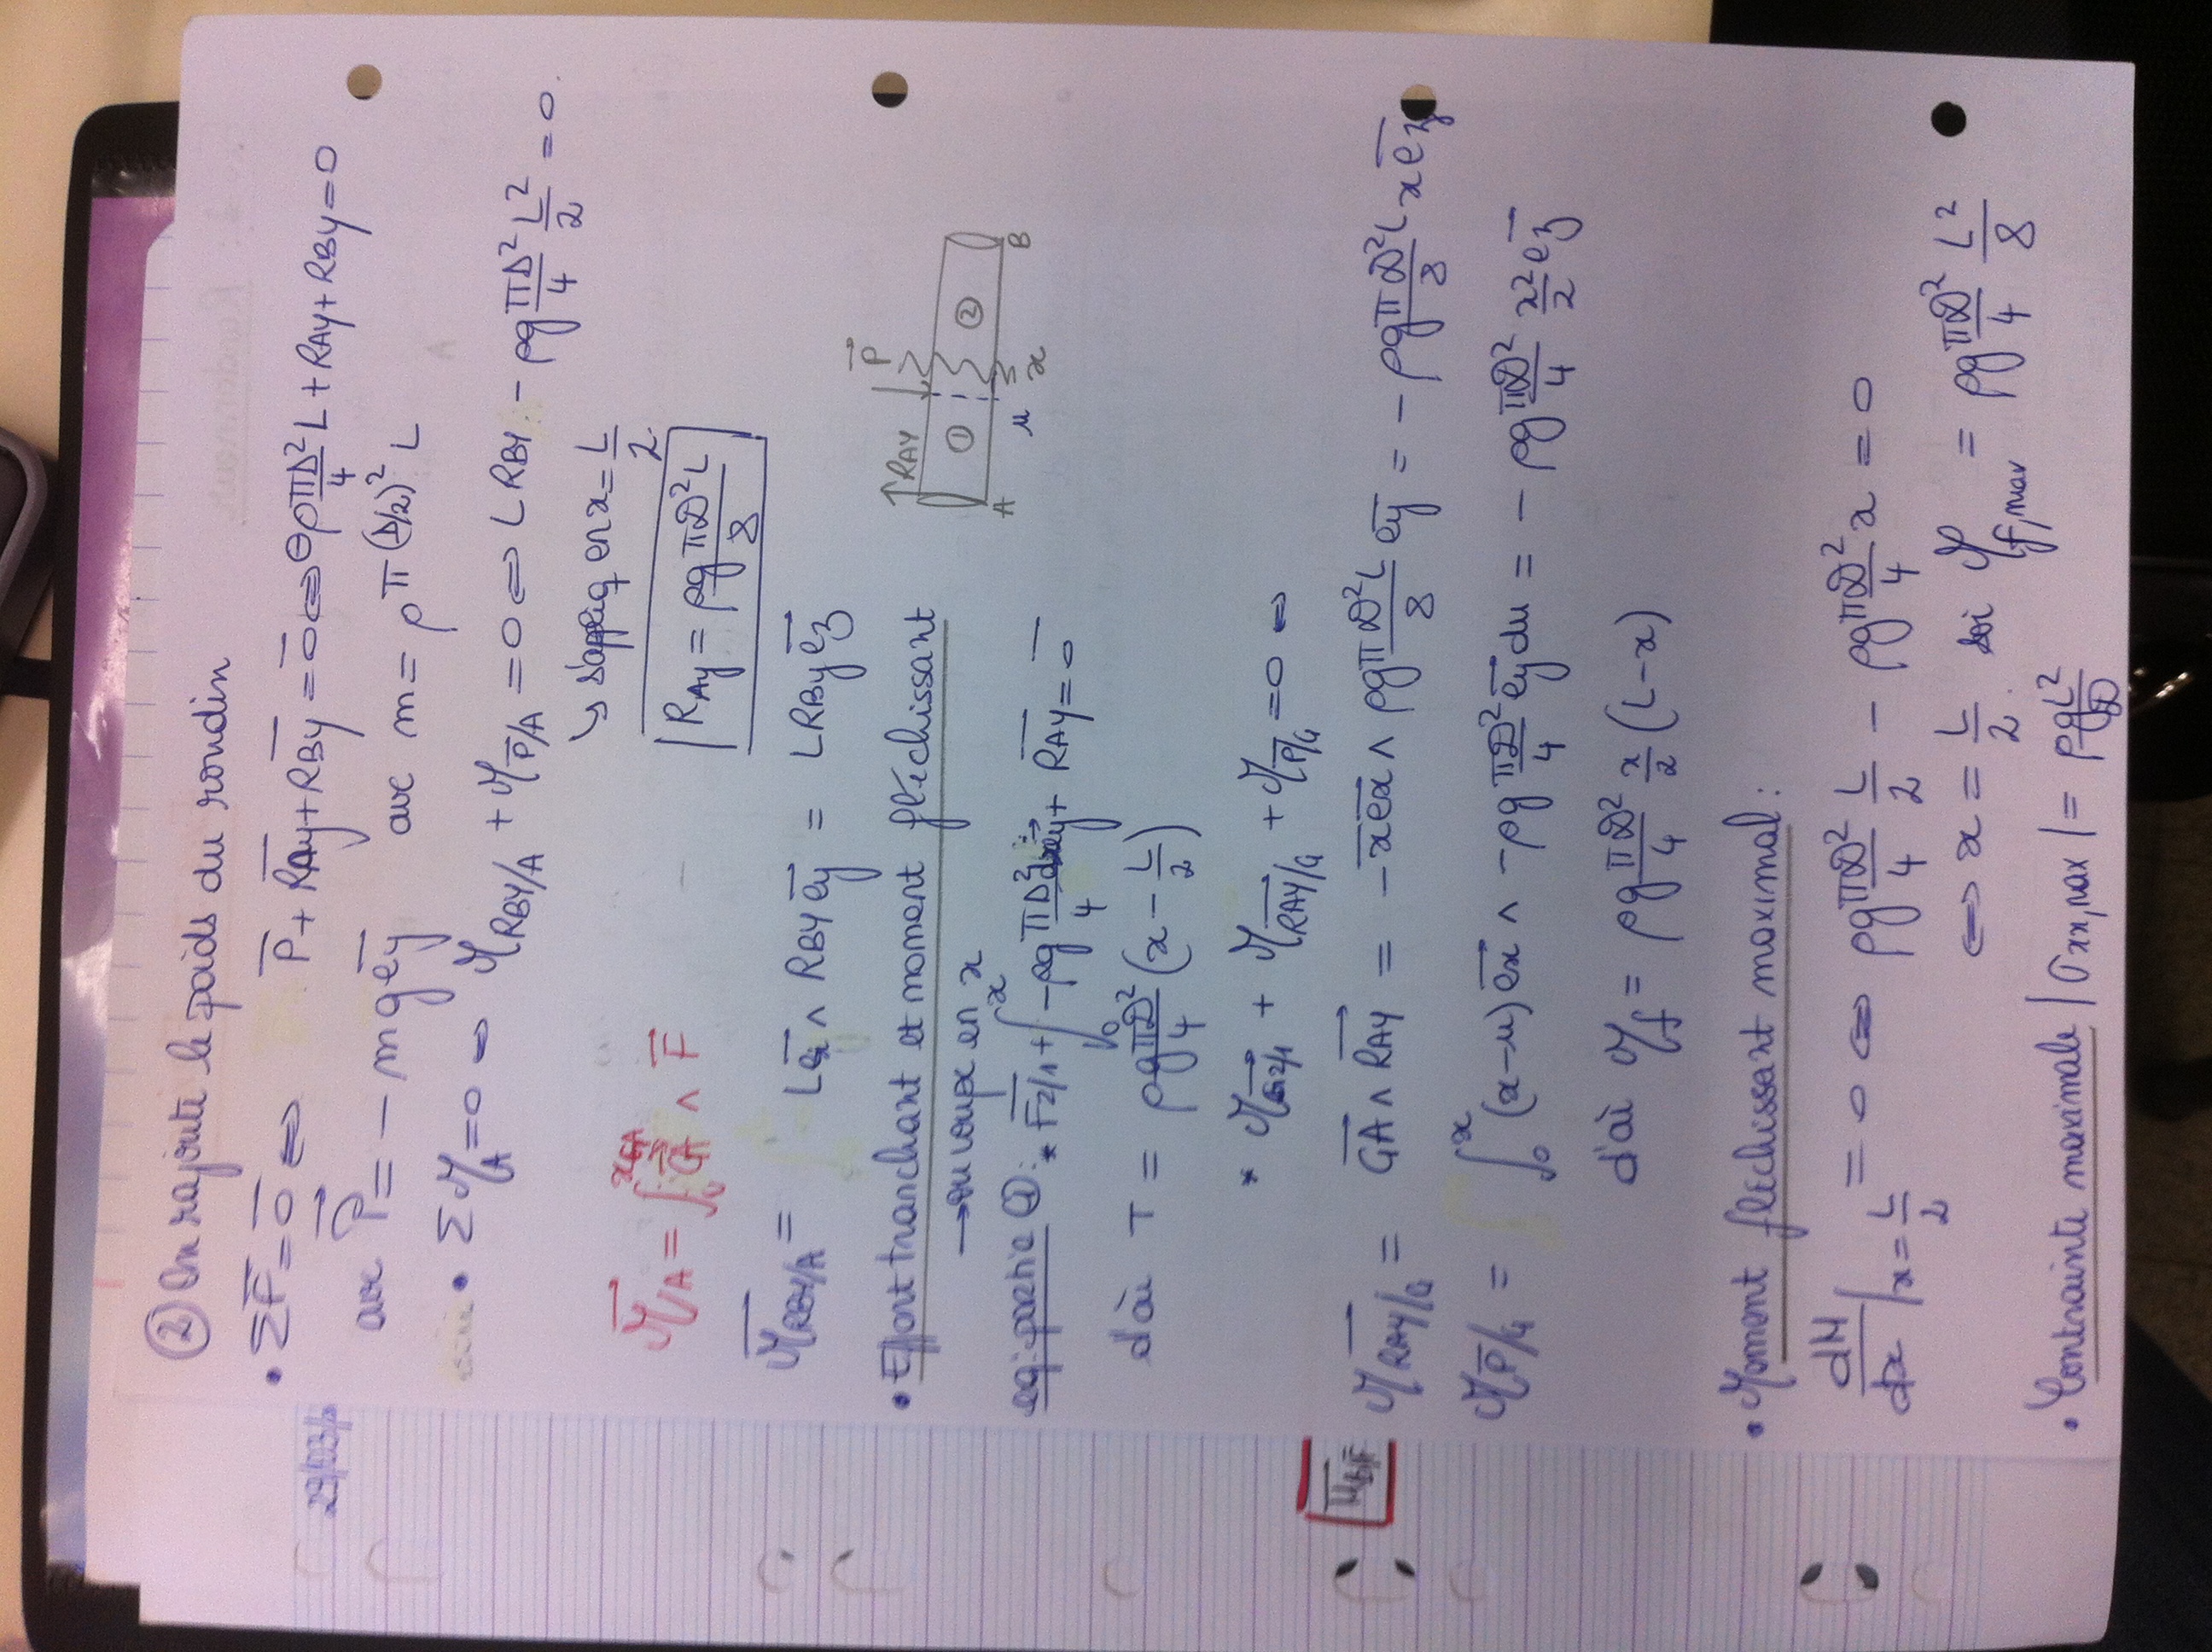 ② On rajoute le poids du rondin
• ΣF⃗ = 0⃗ ⇔ P⃗ + R⃗Ay + R⃗By = 0⃗ ⇔ ⊖ρ πD²/4 L + RAy + RBy = 0
29/03/
avec P⃗ = - mg e⃗y avec m = ρ π (D/2)² L
• Σ M_A = 0 ⇔ M_RBY/A + M_P⃗/A = 0 ⇔ L RBY - ρg πD²/4 L²/2 = 0.
↳ s'appliq en x = L/2
M⃗_A = ∫ GA⃗ ∧ F⃗
RAy = ρg πD²L/8
M⃗_RBY/A = L e⃗x ∧ RBY e⃗y = L RBy e⃗z
• Effort tranchant et moment fléchissant
P⃗
RAY
→ on coupe en x
① ②
A u x B
eq: partie ①: * F⃗2/1 + ∫₀ˣ -ρg πD²/4 dx e⃗y + R⃗AY = 0⃗
d'où T = ρg πD²/4 (x - L/2)
* M_G2/1 + M_RAY/G + M_P/G = 0 ⇔
M_RAY/G = GA⃗ ∧ RAY⃗ = -x e⃗x ∧ ρg πD²L/8 e⃗y = - ρg πD²L/8 x e⃗z
M_P/G = ∫₀ˣ (x-u) e⃗x ∧ -ρg πD²/4 e⃗y du = - ρg πD²/4 x²/2 e⃗z
d'où M_f = ρg πD²/4 x/2 (L-x)
• Moment fléchissant maximal :
dM/dx |x=L/2 = 0 ⇔ ρg πD²/4 L/2 - ρg πD²/4 x = 0
⇔ x = L/2. soi M_f,max = ρg πD²/4 L²/8
• Contrainte maximale |σxx,max| = ρgL²/D